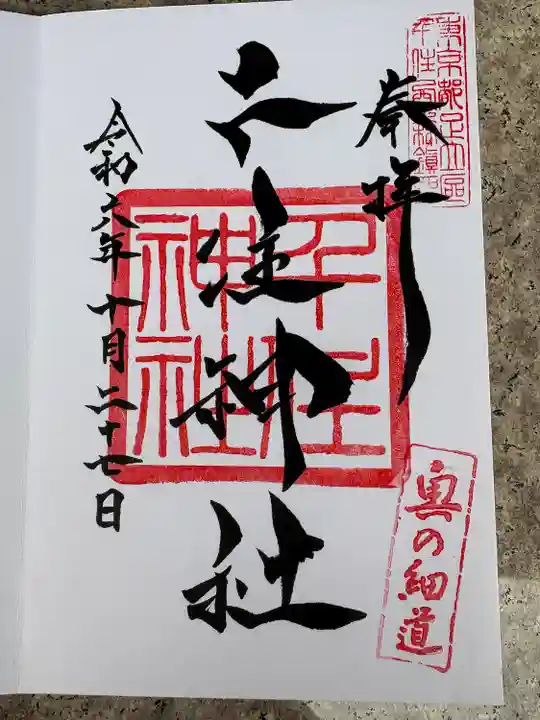 東京都足立区
千住西部鎮守
奉拝
千住神社
千住
神社
令和六年十月二十七日
奥の細道